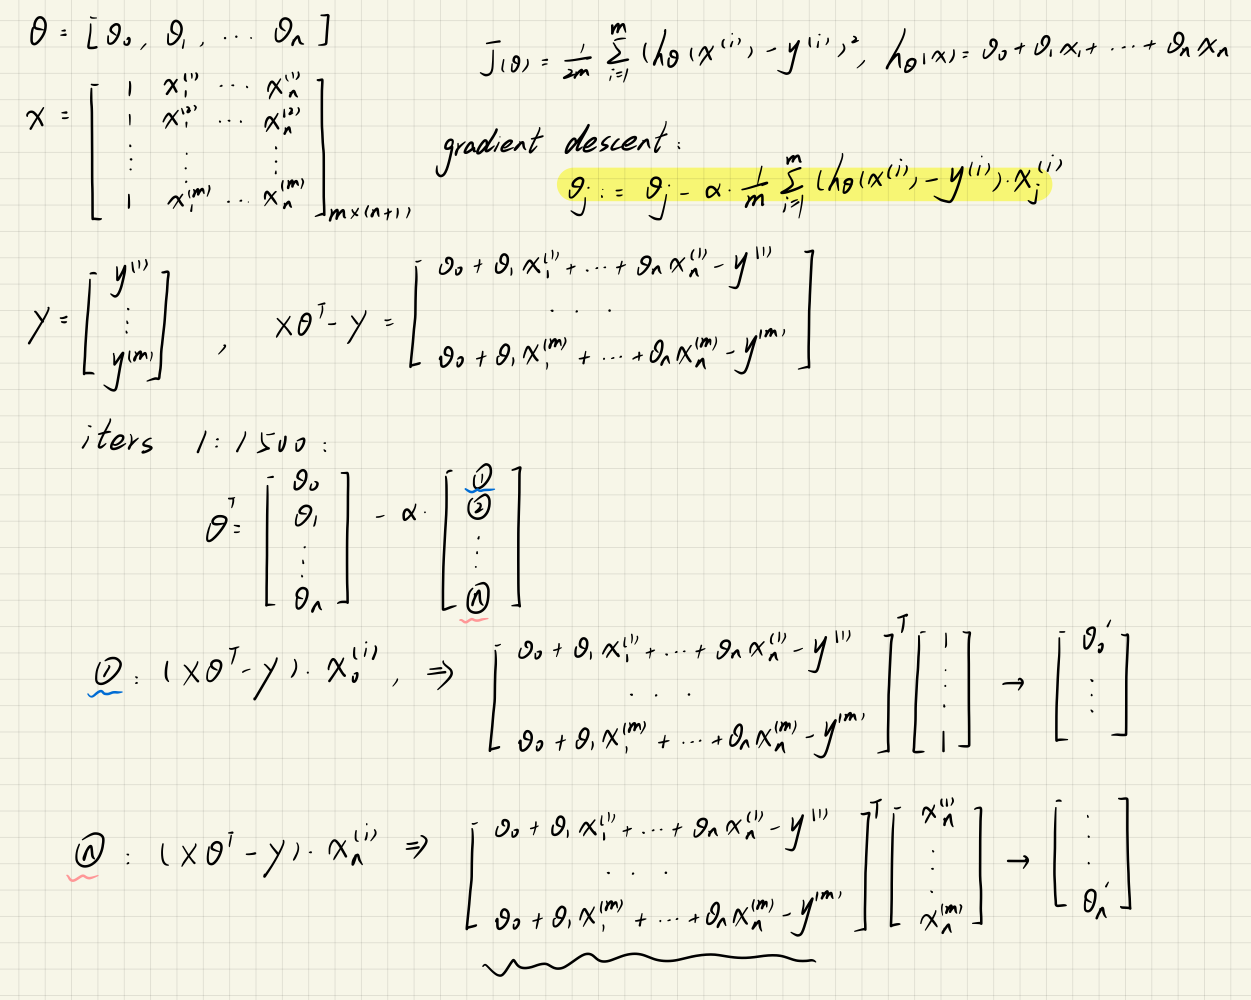 θ = [ θ₀, θ₁, ··· θₙ ]
J(θ) = 1/2m Σᵢ₌₁ᵐ (h_θ(x⁽ⁱ⁾) - y⁽ⁱ⁾)², h_θ(x) = θ₀ + θ₁x₁ + ··· + θₙxₙ
x = [ 1 x₁⁽¹⁾ ··· xₙ⁽¹⁾
1 x₁⁽²⁾ ··· xₙ⁽²⁾
⋮ ⋮ ⋮
1 x₁⁽ᵐ⁾ ··· xₙ⁽ᵐ⁾ ] m×(n+1)
gradient descent:
θⱼ := θⱼ - α · 1/m Σᵢ₌₁ᵐ (h_θ(x⁽ⁱ⁾) - y⁽ⁱ⁾) · xⱼ⁽ⁱ⁾
y = [ y⁽¹⁾ ⋮ y⁽ᵐ⁾ ] , xθᵀ - y = [ θ₀ + θ₁x₁⁽¹⁾ + ··· + θₙxₙ⁽¹⁾ - y⁽¹⁾
···
θ₀ + θ₁x₁⁽ᵐ⁾ + ··· + θₙxₙ⁽ᵐ⁾ - y⁽ᵐ⁾ ]
iters 1:1500:
θᵀ = [ θ₀ θ₁ ⋮ θₙ ] - α · [ ① ② ⋮ ⓝ ]
① : (xθᵀ - y) · x₀⁽ⁱ⁾, ⇒ [ θ₀ + θ₁x₁⁽¹⁾ + ··· + θₙxₙ⁽¹⁾ - y⁽¹⁾
···
θ₀ + θ₁x₁⁽ᵐ⁾ + ··· + θₙxₙ⁽ᵐ⁾ - y⁽ᵐ⁾ ]ᵀ [ 1 ⋮ 1 ] → [ θ₀' ⋮ ]
ⓝ : (xθᵀ - y) · xₙ⁽ⁱ⁾ ⇒ [ θ₀ + θ₁x₁⁽¹⁾ + ··· + θₙxₙ⁽¹⁾ - y⁽¹⁾
···
θ₀ + θ₁x₁⁽ᵐ⁾ + ··· + θₙxₙ⁽ᵐ⁾ - y⁽ᵐ⁾ ]ᵀ [ xₙ⁽¹⁾ ⋮ xₙ⁽ᵐ⁾ ] → [ ⋮ θₙ' ]